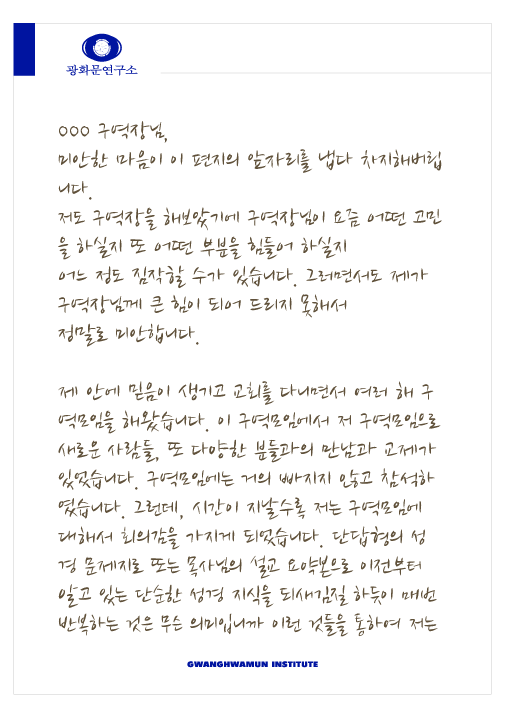 광화문연구소
OOO 구역장님,
미안한 마음이 이 편지의 앞자리를 냅다 차지해버립
니다.
저도 구역장을 해보았기에 구역장님이 요즘 어떤 고민
을 하실지 또 어떤 부분을 힘들어 하실지
어느 정도 짐작할 수가 있습니다. 그러면서도 제가
구역장님께 큰 힘이 되어 드리지 못해서
정말로 미안합니다.
제 안에 믿음이 생기고 교회를 다니면서 여러 해 구
역모임을 해왔습니다. 이 구역모임에서 저 구역모임으로
새로운 사람들, 또 다양한 분들과의 만남과 교제가
있었습니다. 구역모임에는 거의 빠지지 않고 참석하
였습니다. 그런데, 시간이 지날수록 저는 구역모임에
대해서 회의감을 가지게 되었습니다. 단답형의 성
경 문제지로 또는 목사님의 설교 요약본으로 이전부터
알고 있는 단순한 성경 지식을 되새김질 하듯이 매번
반복하는 것은 무슨 의미입니까 이런 것들을 통하여 저는
GWANGHWAMUN INSTITUTE